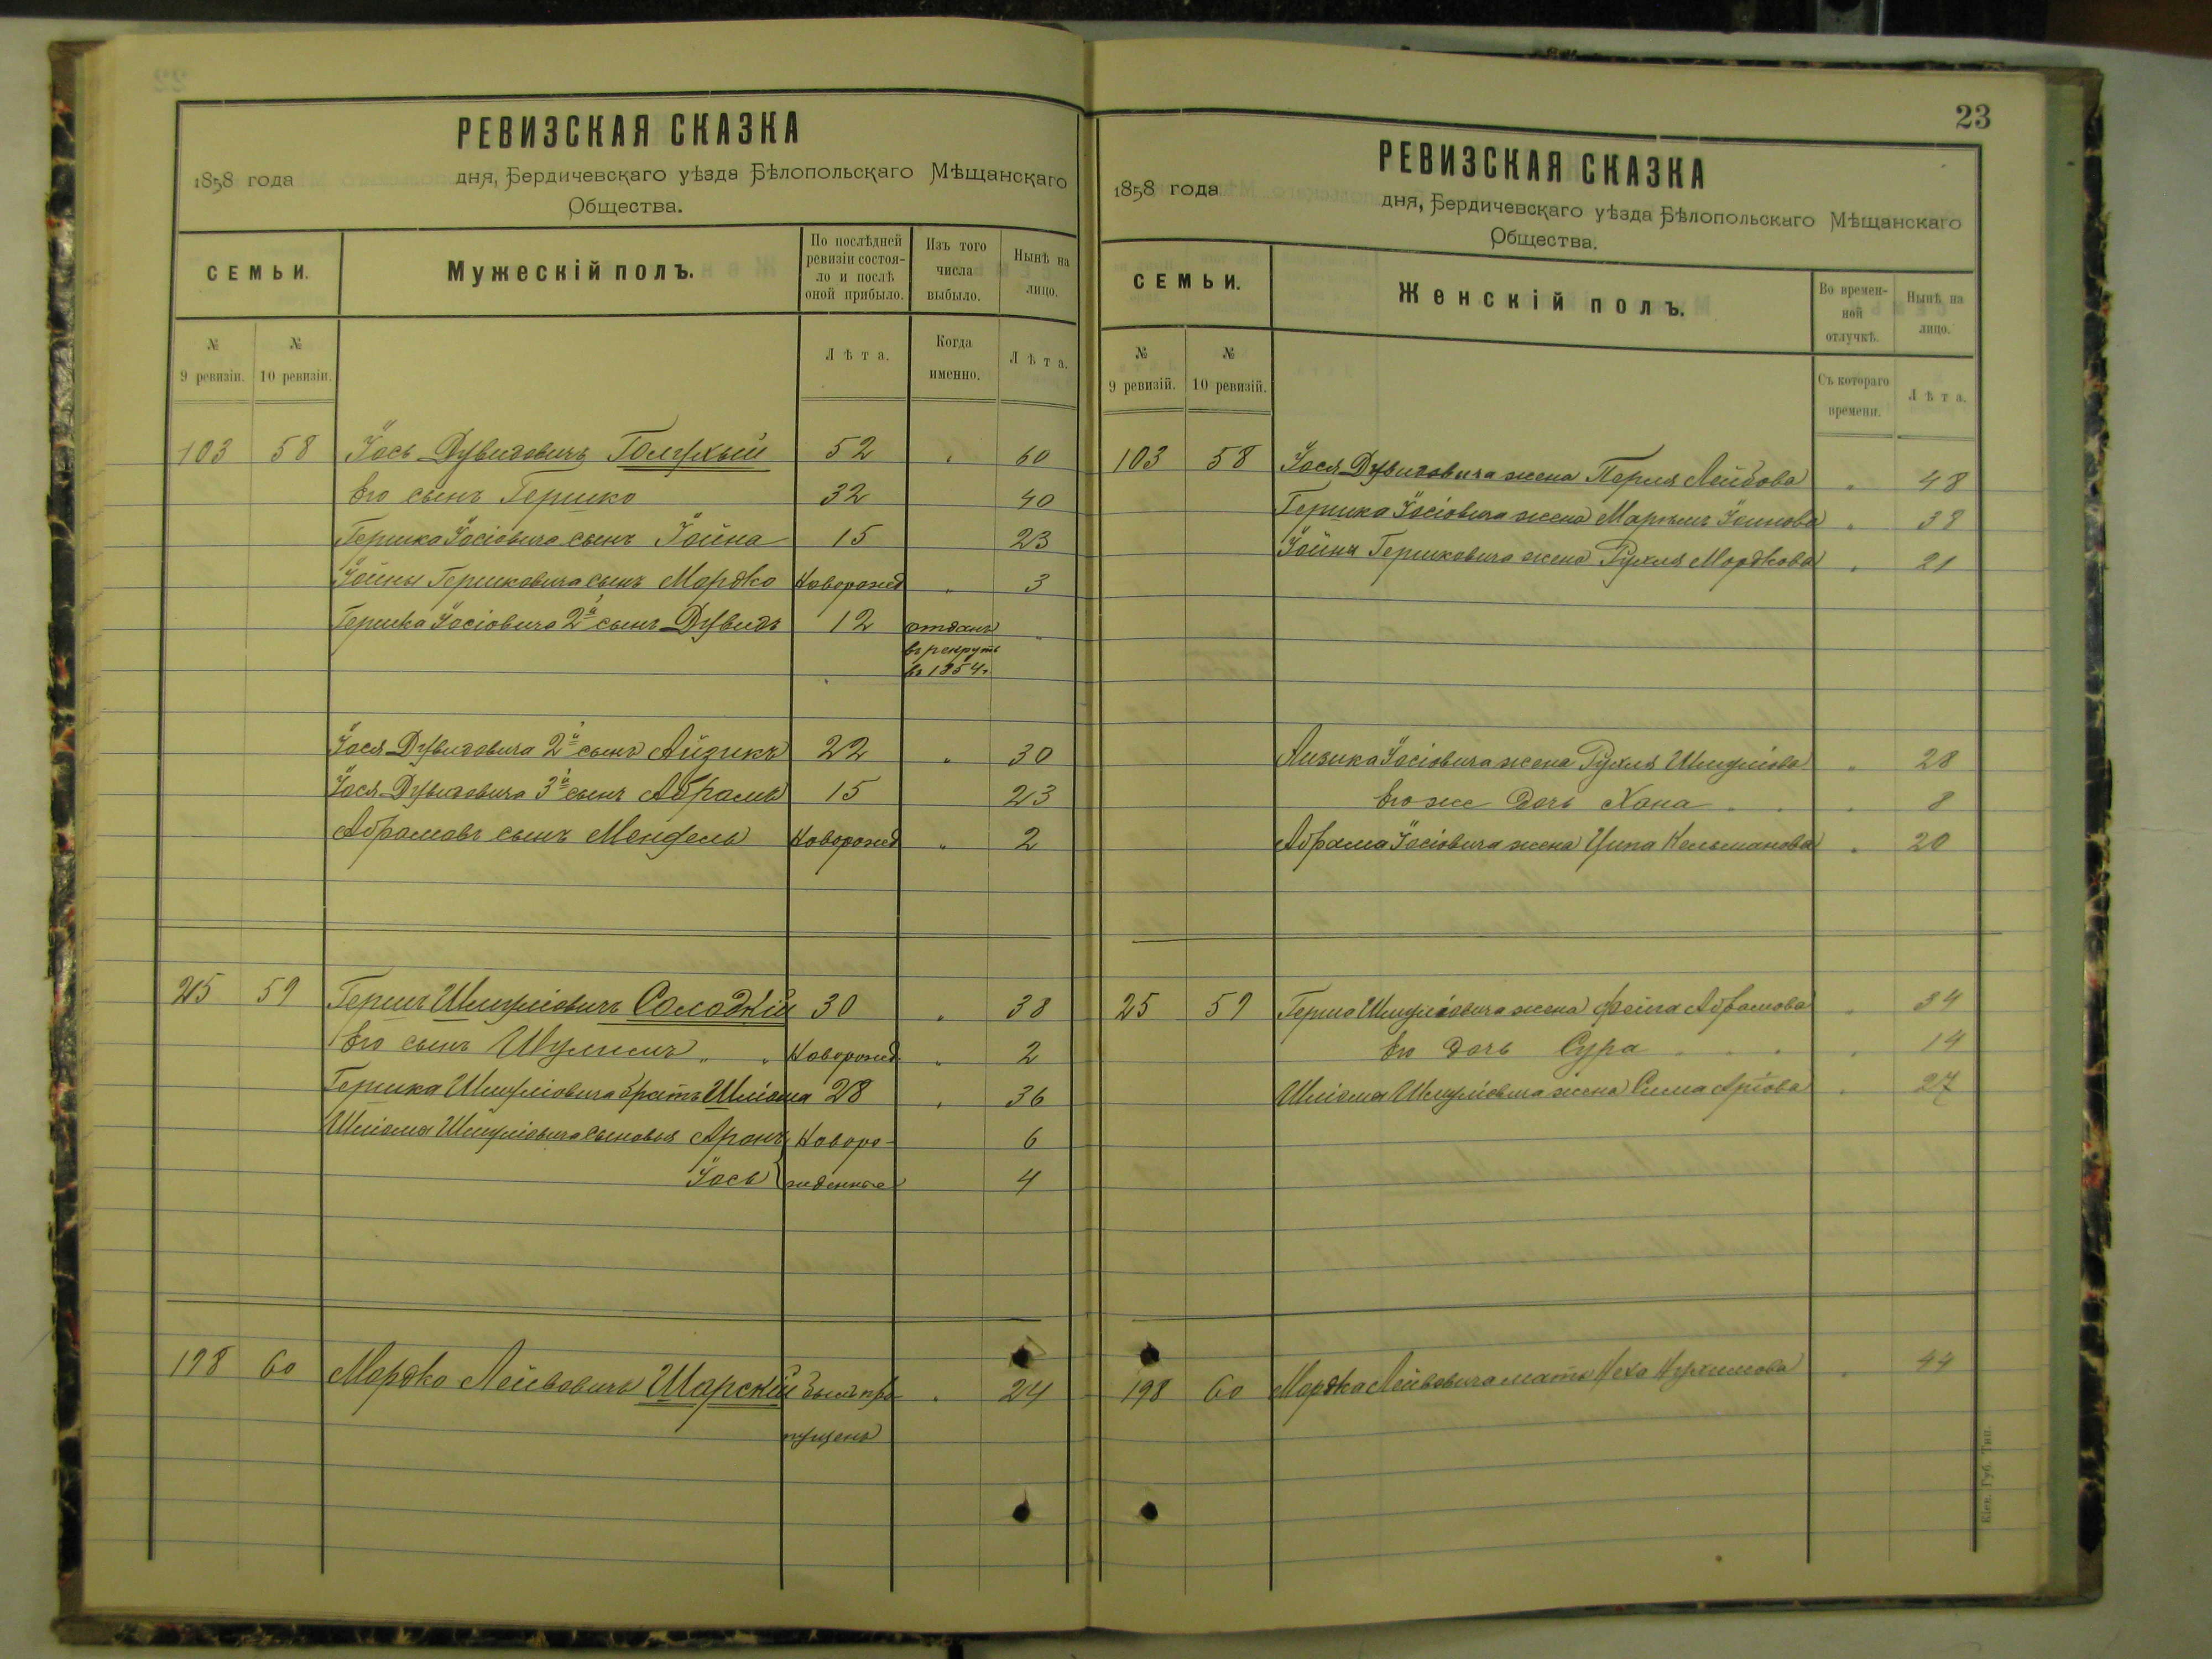 РЕВИЗСКАЯ СКАЗКА
1858 года дня, Бердичевскаго уѣзда Бѣлопольскаго Мѣщанскаго
Общества.
СЕМЬИ.
Мужескій полъ.
По послѣдней
ревизіи состоя-
ло и послѣ
оной прибыло.
Изъ того
числа
выбыло.
Нынѣ на
лицо.
№
9 ревизіи.
№
10 ревизіи.
Лѣта.
Когда
именно.
Лѣта.
103 58 Іось Дувидовичъ Голухый 52 60
Его сынъ Гершко 32 40
Гершка Іосіовича сынъ Іойна 15 23
Іойны Гершковича сынъ Мордко Новорожд 3
Гершка Іосіовича 2й сынъ Дувидъ 12 отданъ
въ рекруты
въ 1854 г.
Іося Дувидовича 2й сынъ Айзикъ 22 30
Іося Дувидовича 3й сынъ Абрамъ 15 23
Абрамовъ сынъ Мендель Новорожд 2
25 59 Гершъ Шмуліовичъ Солодкій 30 38
Его сынъ Шулимъ Новорожд 2
Гершка Шмуліовича братъ Шліома 28 36
Шліома Шмуліовича сыновья Аронъ Новоро- 6
Іось жденные 4
198 60 Мордко Лейбовичъ Шарскій былъ про 24
пущенъ
23
РЕВИЗСКАЯ СКАЗКА
1858 года дня, Бердичевскаго уѣзда Бѣлопольскаго Мѣщанскаго
Общества.
СЕМЬИ.
Женскій полъ.
Во времен-
ной
отлучкѣ.
Нынѣ на
лицо.
№
9 ревизій.
№
10 ревизій.
Съ котораго
времени.
Лѣта.
103 58 Іося Дувидовича жена Перля Лейбова 48
Гершка Іосіовича жена 38
Іойны Гершковича жена Рухля Мордкова 21
Айзика Іосіовича жена Рухля Шмуліова 28
Его же дочь Хана 8
Абрама Іосіовича жена Ципа Кельманова 20
25 59 Герша Шмуліовича жена Фейга Абрамова 34
Его дочь Сура 14
Шліома Шмуліовича жена Сима 27
198 60 Мордка Лейбовича мать Неха Нухимова 44
Кіев. Губ. Тип.